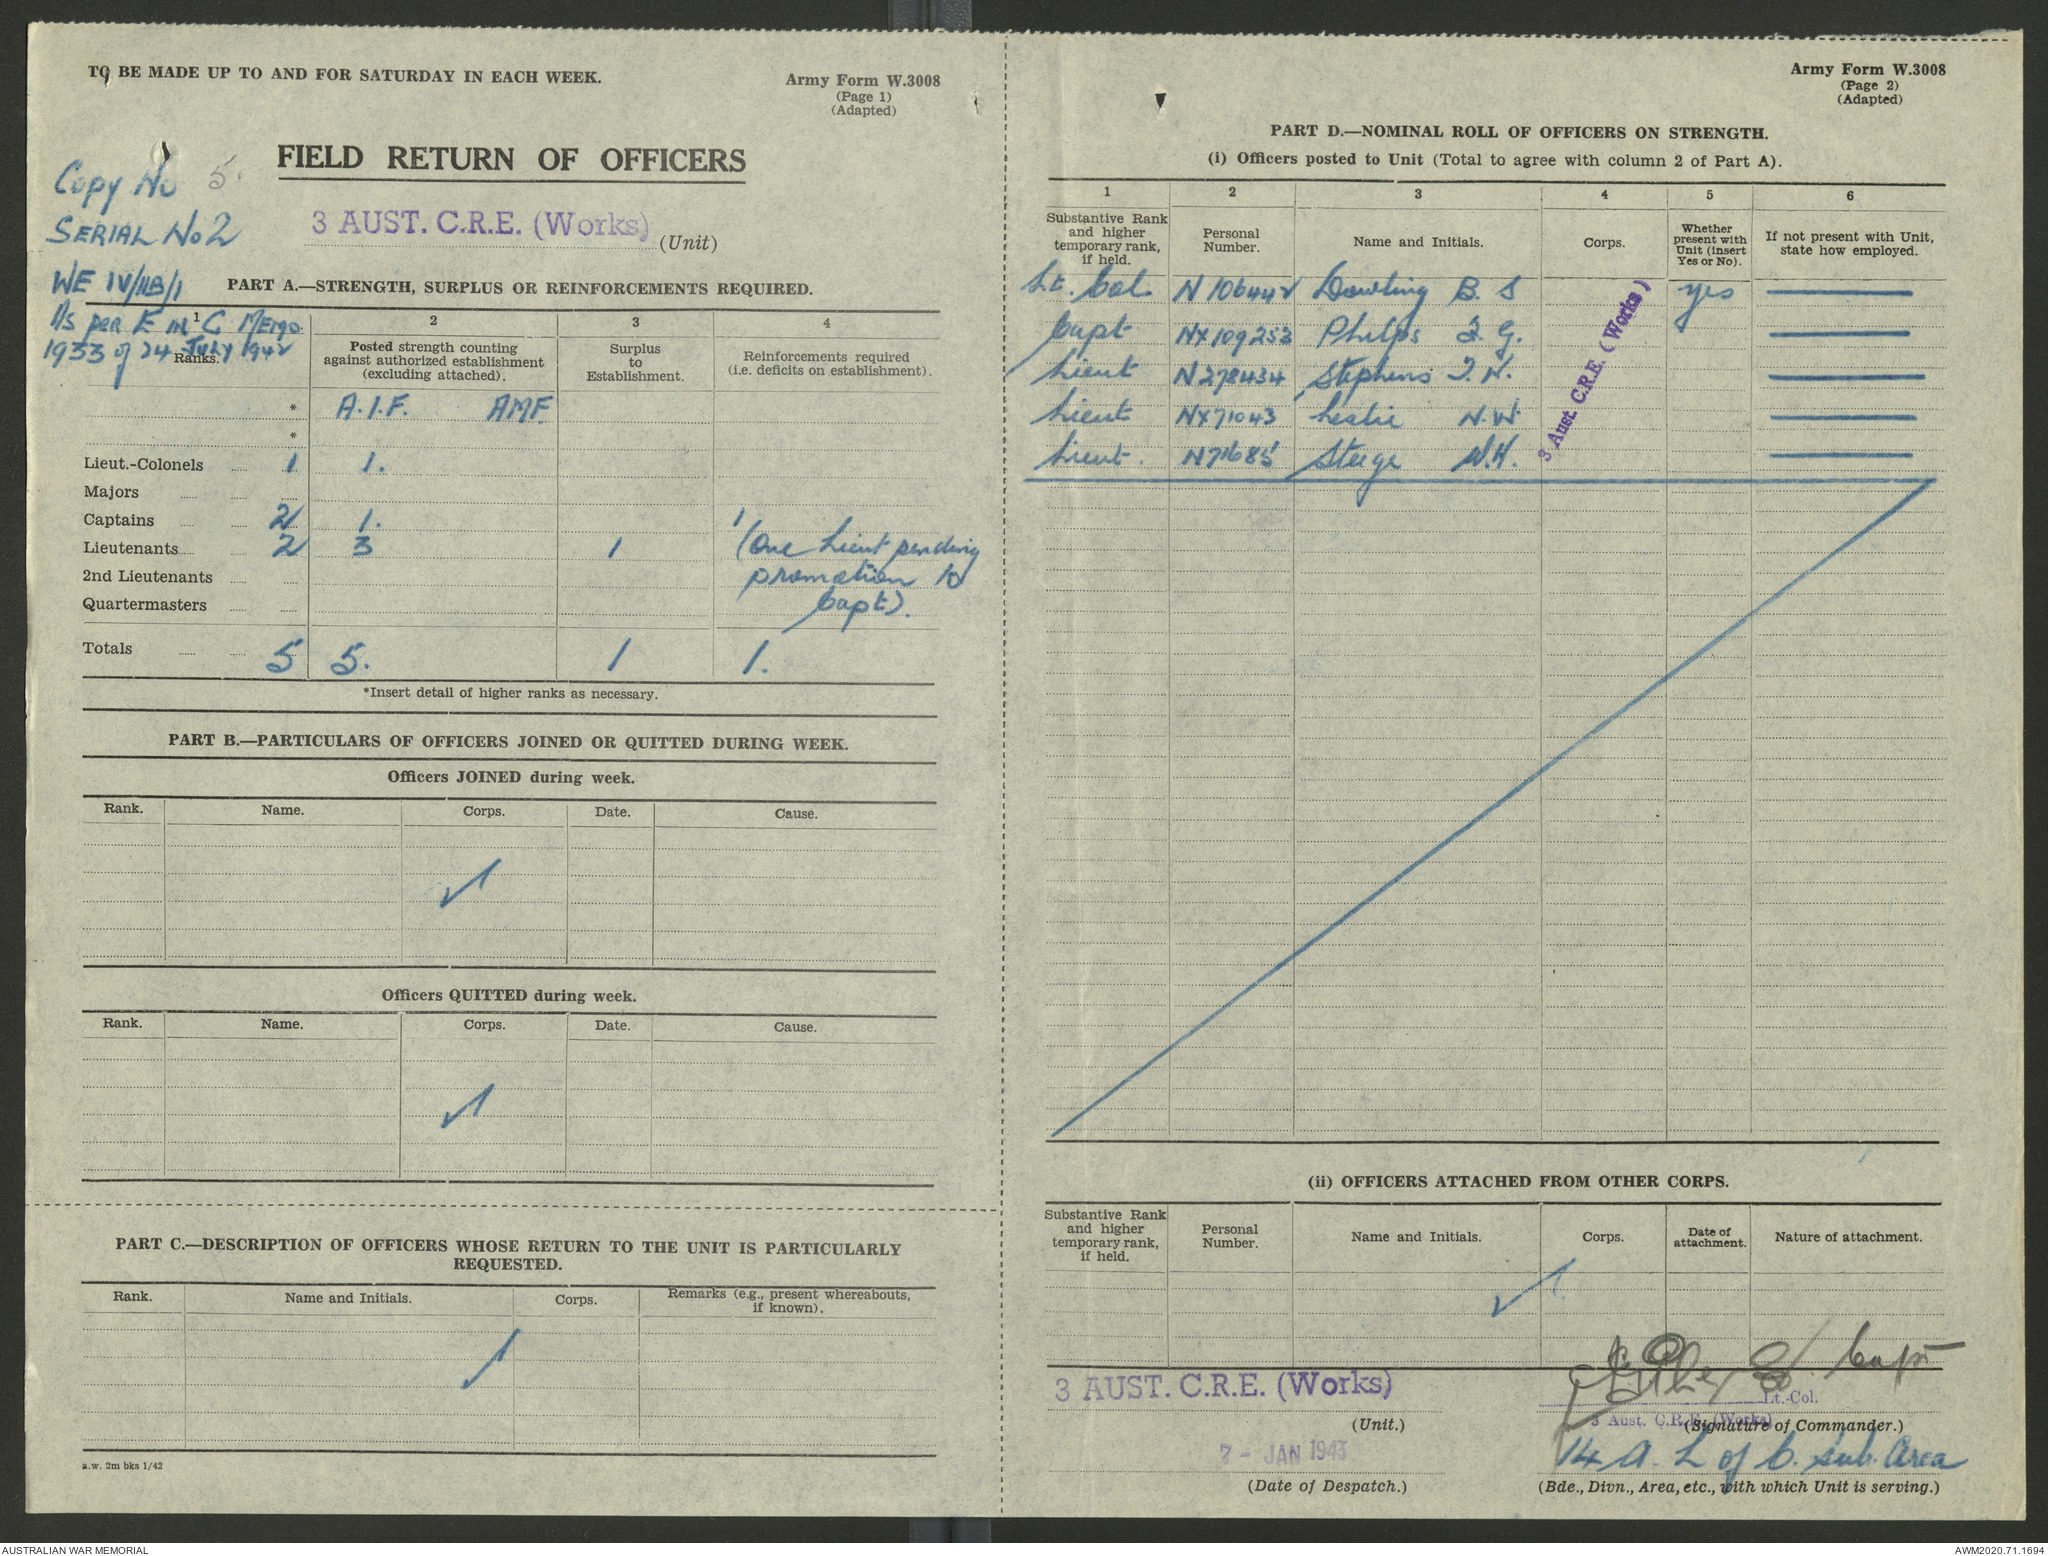 TO BE MADE UP TO AND FOR SATURDAY IN EACH WEEK.
Army Form W.3008
(Page 1)
(Adapted)
Copy No 5.
FIELD RETURN OF OFFICERS
SERIAL No 2
3 AUST. C.R.E. (Works) (Unit)
WE IV/11B/1
PART A.—STRENGTH, SURPLUS OR REINFORCEMENTS REQUIRED.
As per E in C Memo
1933 of 24 July 1942
1 2 3 4
Ranks.
Posted strength counting against authorized establishment (excluding attached).
Surplus to Establishment.
Reinforcements required (i.e. deficits on establishment).
* A.I.F. AMF.
*
Lieut.-Colonels 1 1.
Majors
Captains 2 1. 1
Lieutenants 2 3 1 (One Lieut pending
2nd Lieutenants promotion to
Quartermasters Capt).
Totals 5 5. 1 1.
*Insert detail of higher ranks as necessary.
PART B.—PARTICULARS OF OFFICERS JOINED OR QUITTED DURING WEEK.
Officers JOINED during week.
Rank. Name. Corps. Date. Cause.
Officers QUITTED during week.
Rank. Name. Corps. Date. Cause.
PART C.—DESCRIPTION OF OFFICERS WHOSE RETURN TO THE UNIT IS PARTICULARLY
REQUESTED.
Rank. Name and Initials. Corps. Remarks (e.g., present whereabouts, if known).
a.w. 2m bks 1/42
Army Form W.3008
(Page 2)
(Adapted)
PART D.—NOMINAL ROLL OF OFFICERS ON STRENGTH.
(i) Officers posted to Unit (Total to agree with column 2 of Part A).
1 2 3 4 5 6
Substantive Rank and higher temporary rank, if held.
Personal Number.
Name and Initials.
Corps.
Whether present with Unit (insert Yes or No).
If not present with Unit, state how employed.
Lt. Col. N106442 Dowling B. S yes
Capt NX109253 Phelps F. G.
Lieut N278434 Stephens T. H.
Lieut NX71043 Leslie N. W.
Lieut. N71685 Steege W. H.
3 Aust. C.R.E. (Works)
(ii) OFFICERS ATTACHED FROM OTHER CORPS.
Substantive Rank and higher temporary rank, if held.
Personal Number.
Name and Initials.
Corps.
Date of attachment.
Nature of attachment.
Capt
3 AUST. C.R.E. (Works)
Lt.-Col.
(Unit.)
3 Aust. C.R.E. (Works)
(Signature of Commander.)
7 - JAN 1943
14 A. L of C. Sub. Area
(Date of Despatch.)
(Bde., Divn., Area, etc., with which Unit is serving.)
AUSTRALIAN WAR MEMORIAL
AWM2020.71.1694